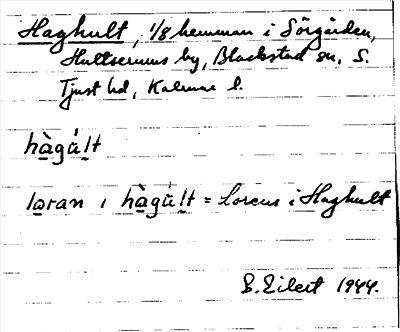 Haghult, 1/8 hemman i Sörgården,
Hultserums by, Blackstad sn, S.
Tjust hd, Kalmar l.
hàgúlt
laran i hàgúlt = Larens i Haghult
E. Eilert 1944.